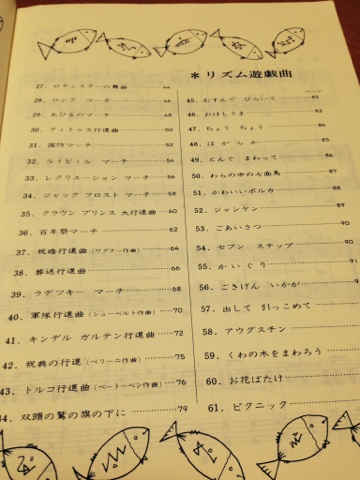 27. ロチェスターの舞曲 44
28. ロング マーチ 46
29. あひるのマーチ 48
30. ティトゥス行進曲 50
31. 国際マーチ 52
32. ルイビィル マーチ 54
33. レクリエーション マーチ 56
34. ジャック フロスト マーチ 58
35. クラウン プリンス 大行進曲 60
36. 百年祭マーチ 62
37. 祝婚行進曲 (ワグナー作曲) 64
38. 葬送行進曲 66
39. ラデツキー マーチ 68
40. 軍隊行進曲 (シューベルト作曲) 70
41. キンデル ガルテン行進曲 72
42. 祝典の行進 (ベリーニ作曲) 75
43. トルコ行進曲 (ベートーベン作曲) 76
44. 双頭の鷲の旗の下に 79
*リズム遊戯曲
45. むすんで ひらいて 82
46. おほしさま
47. ちょう ちょう
48. はがらか
49. とんで まわって 86
50. わらの中の七面鳥 87
51. かわいいポルカ 88
52. ジャンケン 89
53. ごあいさつ 90
54. セブン ステップ 90
55. かいぐり
56. ごきげん いかが
57. 出して 引っこめて
58. アウグスチン
59. くわの木をまわろう
60. お花ばたけ
61. ピクニック